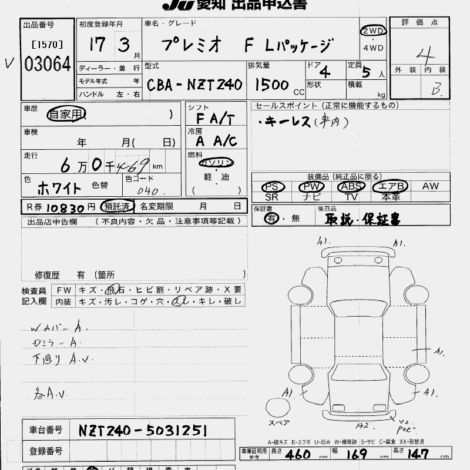 JU 愛知 出品申込書
出品番号
[1570]
03064
V
初度登録年月
17年 3月
ディーラー・並行
モデル年式 年
ハンドル 左・右
車名・グレード
プレミオ F Lパッケージ
2WD
4WD
型式
CBA-NZT240
排気量
1500 CC
ドア 4
形状
定員 5人
積載 kg
評価点
4
外装 内装
B
車歴
自家用 )
車検
年 月( 日)
走行
6万0千469km
色
ホワイト 色替
色コード
040
シフト
F A/T
冷房
A A/C
燃料
ガソリン
軽油
( )
セールスポイント (正常に機能するもの)
・キーレス(車内)
装備品 (純正品に限る)
PS PW ABS エアB AW
SR ナビ TV 本革
R券 10830円 預託済 名変期限 月 日
保証書
有・無
後日品
取説・保証書
出品店申告欄 (不良内容・欠品・注意事項等記載)
修復歴 有 (箇所 )
検査員
記入欄
FW キズ・飛石・ヒビ割・リペア跡・X要
内装 キズ・汚レ・コゲ・穴・スレ・キレ・破レ
下廻り A.V
各A.V
A1.
A1.
A1.
A1.
A2
スペア
A-線キズ E-エクボ U-凹み W-補修跡 S-サビ C-腐食 XX-交換済
車台番号 NZT240-5031251
登録番号
車庫証明用
参考
長さ 460 cm 幅 169 cm 高さ 147 cm